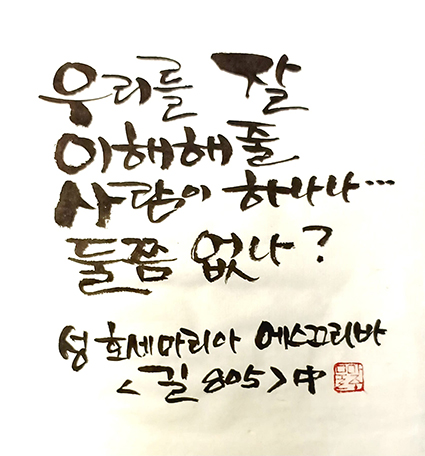 우리를 잘
이해해줄
사람이 하나나…
둘쯤 없나?
성 호세마리아 에스끄리바
<길 805>中